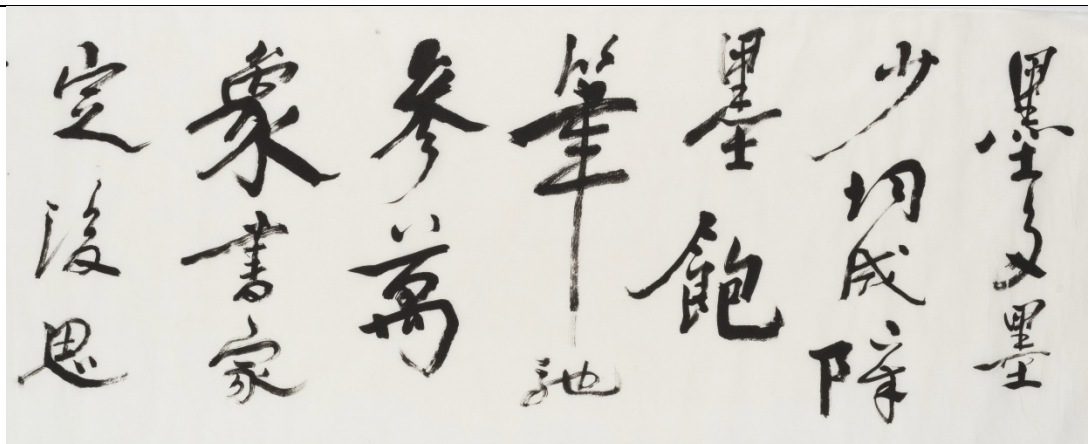 墨多墨
少均成障
墨飽
筆馳
參萬
象書家
定後思